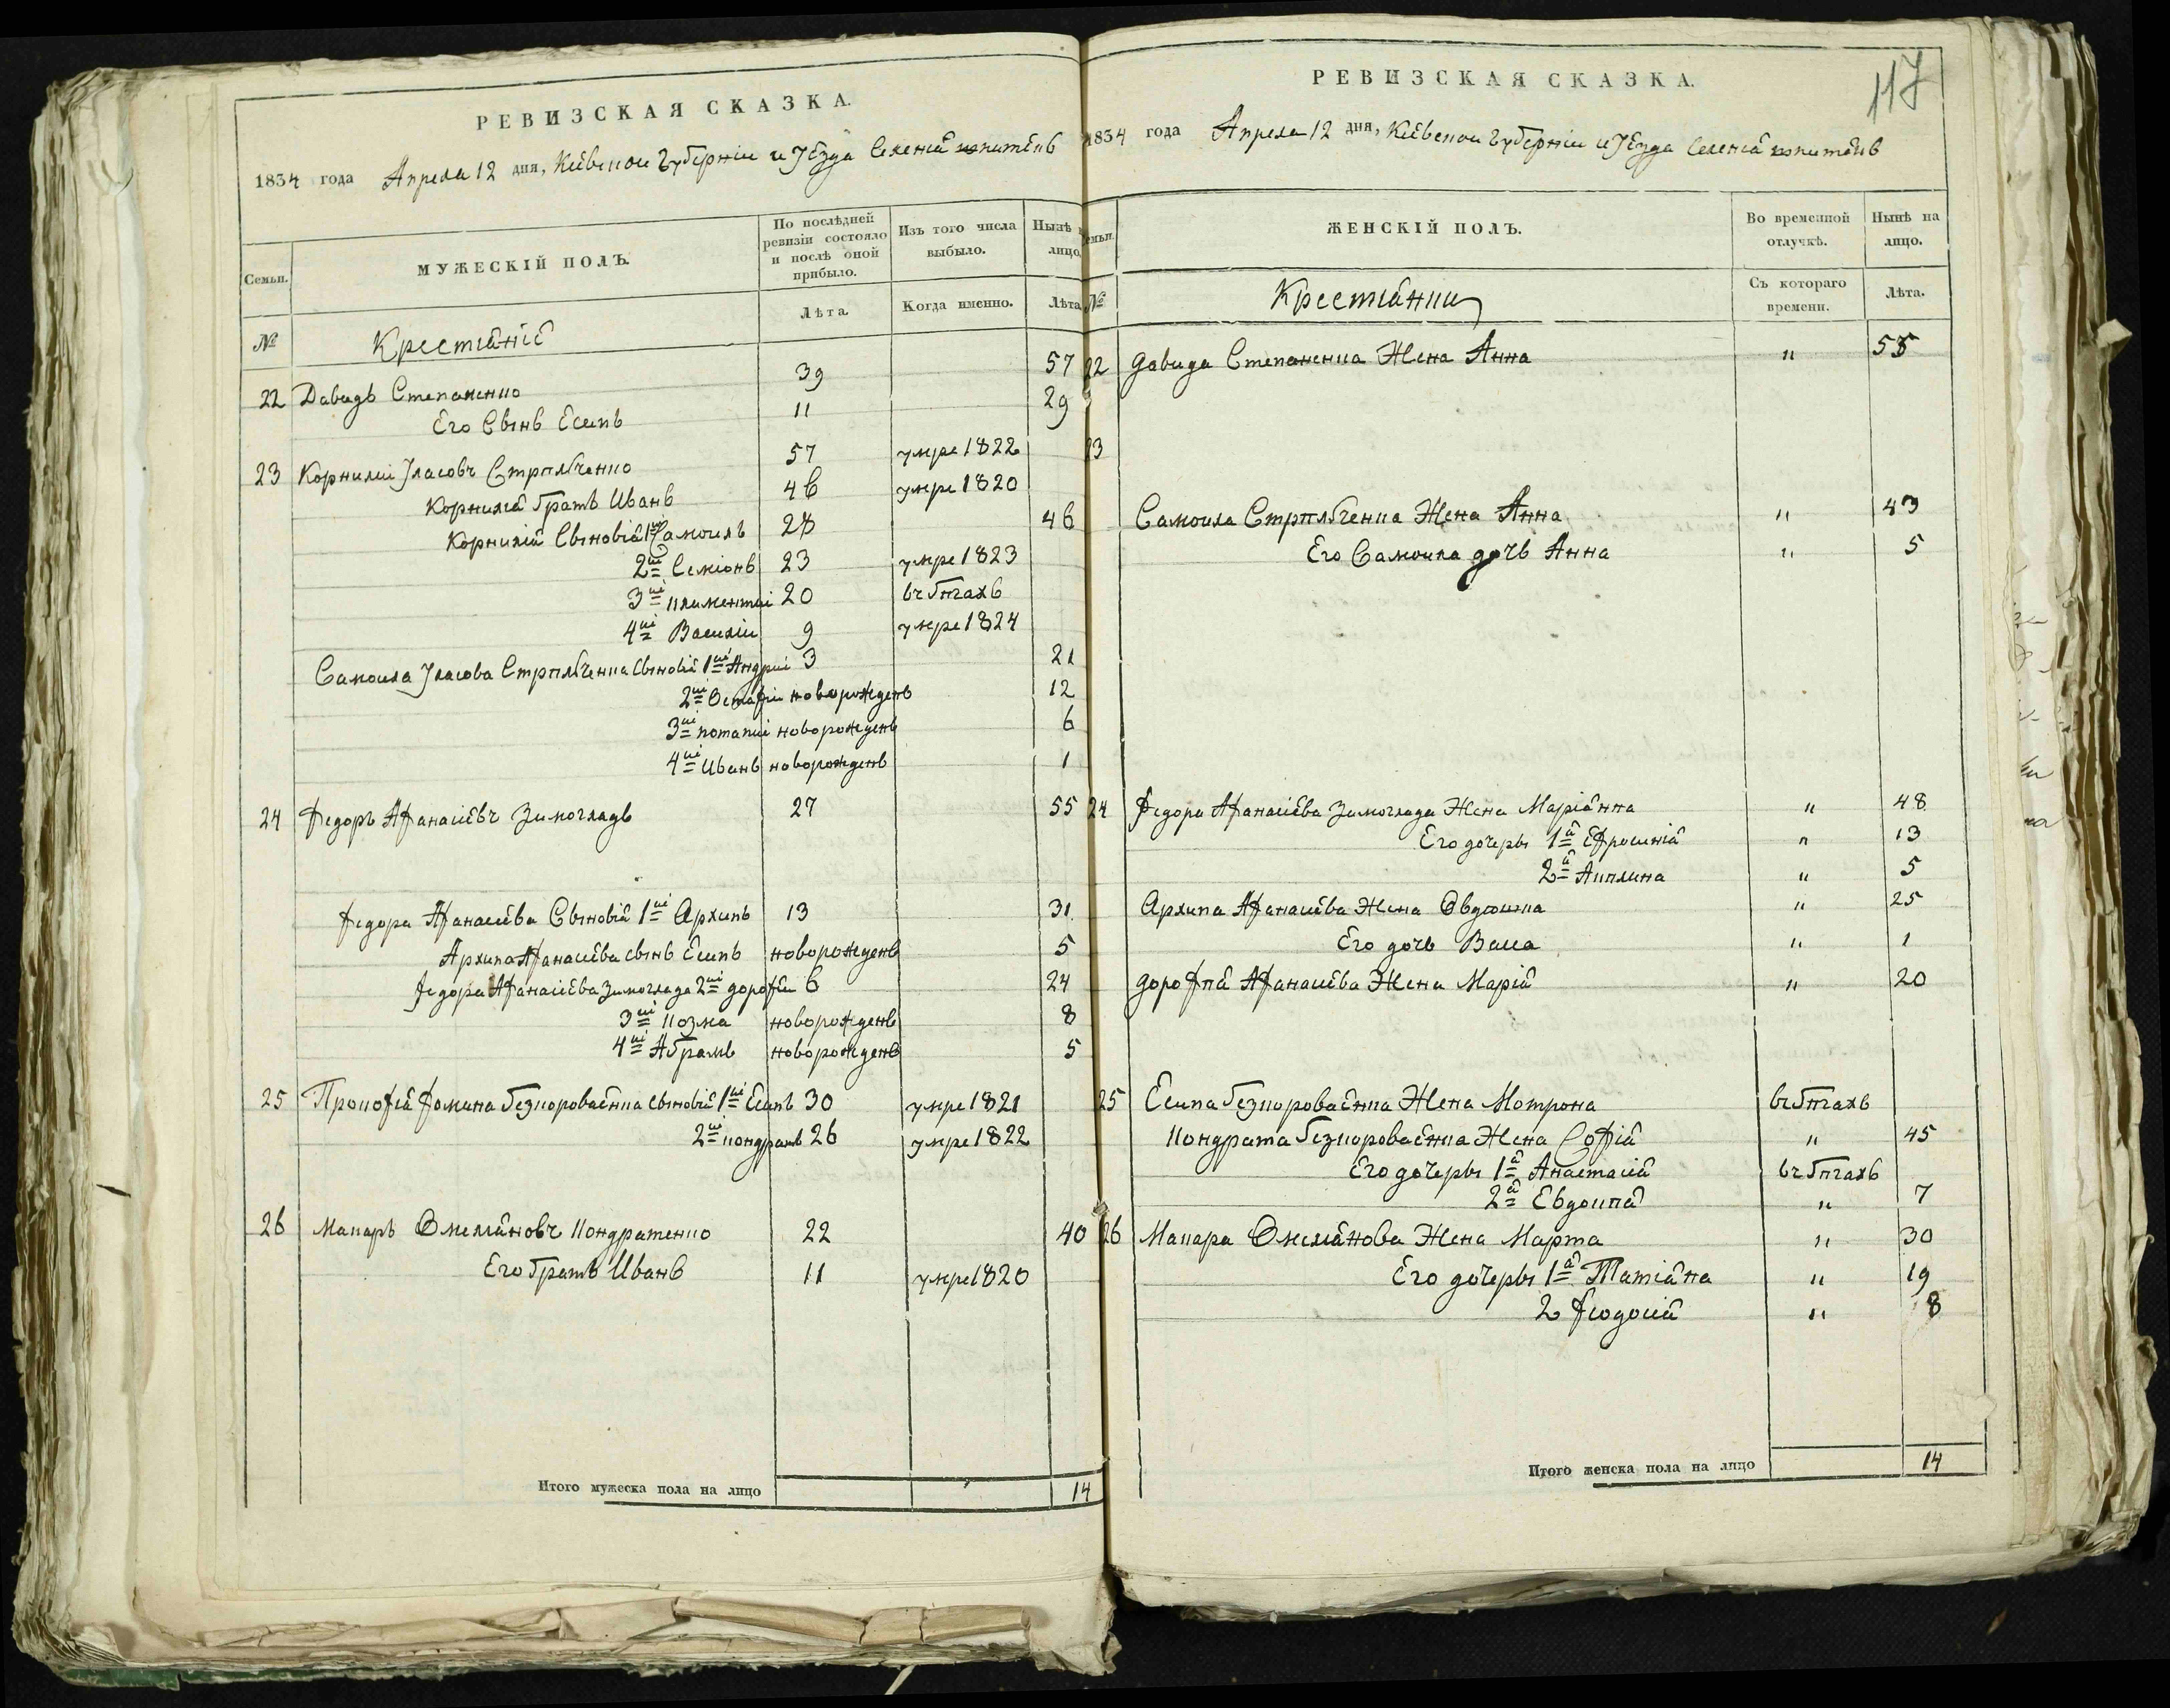 РЕВИЗСКАЯ СКАЗКА.
1834 года Апреля 12 дня, Кіевской Губерніи и Уезда Селенія
Семьи.
МУЖЕСКІЙ ПОЛЪ.
По послѣдней ревизіи состояло и послѣ оной прибыло.
Изъ того числа выбыло.
Нынѣ н лицо.
№
Лѣта.
Когда именно.
Лѣта
Крестіяніе
22 Давидъ Степаненко 39 57
Его Сынъ Есипъ 11 29
23 Корнилій Уласовъ Стрплбченко 57 умре 1822
Корнилія братъ Иванъ 46 умре 1820
Корнилія Сыновія 1й Самоилъ 28 46
2й Семіонъ 23 умре 1823
3й климентій 20 въ бѣгахъ
4й Василій 9 умре 1824
Самоила Уласова Стрплбченка Сыновія 1й Андрій 3 21
2й Остафій новорожденъ 12
3й потапій новорожденъ 6
4й Иванъ новорожденъ 1
24 Федоръ Афанасіевъ Зимогладъ 27 55
Федора Афанасіева Сыновія 1й Архипъ 13 31
Архипа Афанасіева сынъ Есипъ новорожденъ 5
Федора Афанасіева Зимоглада 2й дорофей 6 24
3й козма новорожденъ 8
4й Абрамъ новорожденъ 5
25 Прокофія Фомина безкороваенка сыновія 1й Есипъ 30 умре 1821
2й кондратъ 26 умре 1822
26 Макаръ Омеляновъ Кондратенко 22 40
Его братъ Иванъ 11 умре 1820
Итого мужеска пола на лицо 14
117
РЕВИЗСКАЯ СКАЗКА.
1834 года Апреля 12 дня, Кіевской Губерніи и Уезда Селенія
Семьи.
ЖЕНСКІЙ ПОЛЪ.
Во временной отлучкѣ.
Нынѣ на лицо.
№
Съ котораго времени.
Лѣта.
Крестіянки
22 Давида Степаненка Жена Анна " 55
23
Самоила Стрплбченка Жена Анна " 43
Его Самоила дочь Анна " 5
24 Федора Афанасіева Зимоглада Жена Маріянна " 48
Его дочеры 1я Ефросинія " 13
2я Акилина " 5
Архипа Афанасіева Жена Овдошка " 25
Его дочь Васса " 1
дорофпя Афанасіева Жена Марія " 20
25 Есипа безкороваенка Жена Мотрона въ бѣгахъ
Кондрата безкороваенка Жена Софія " 45
Его дочеры 1я Анастасія въ бѣгахъ
2я Евдокпа " 7
26 Макара Омелянова Жена Марта " 30
Его дочеры 1я Татіяна " 19
2 Феодосія " 8
Итого женска пола на лицо 14